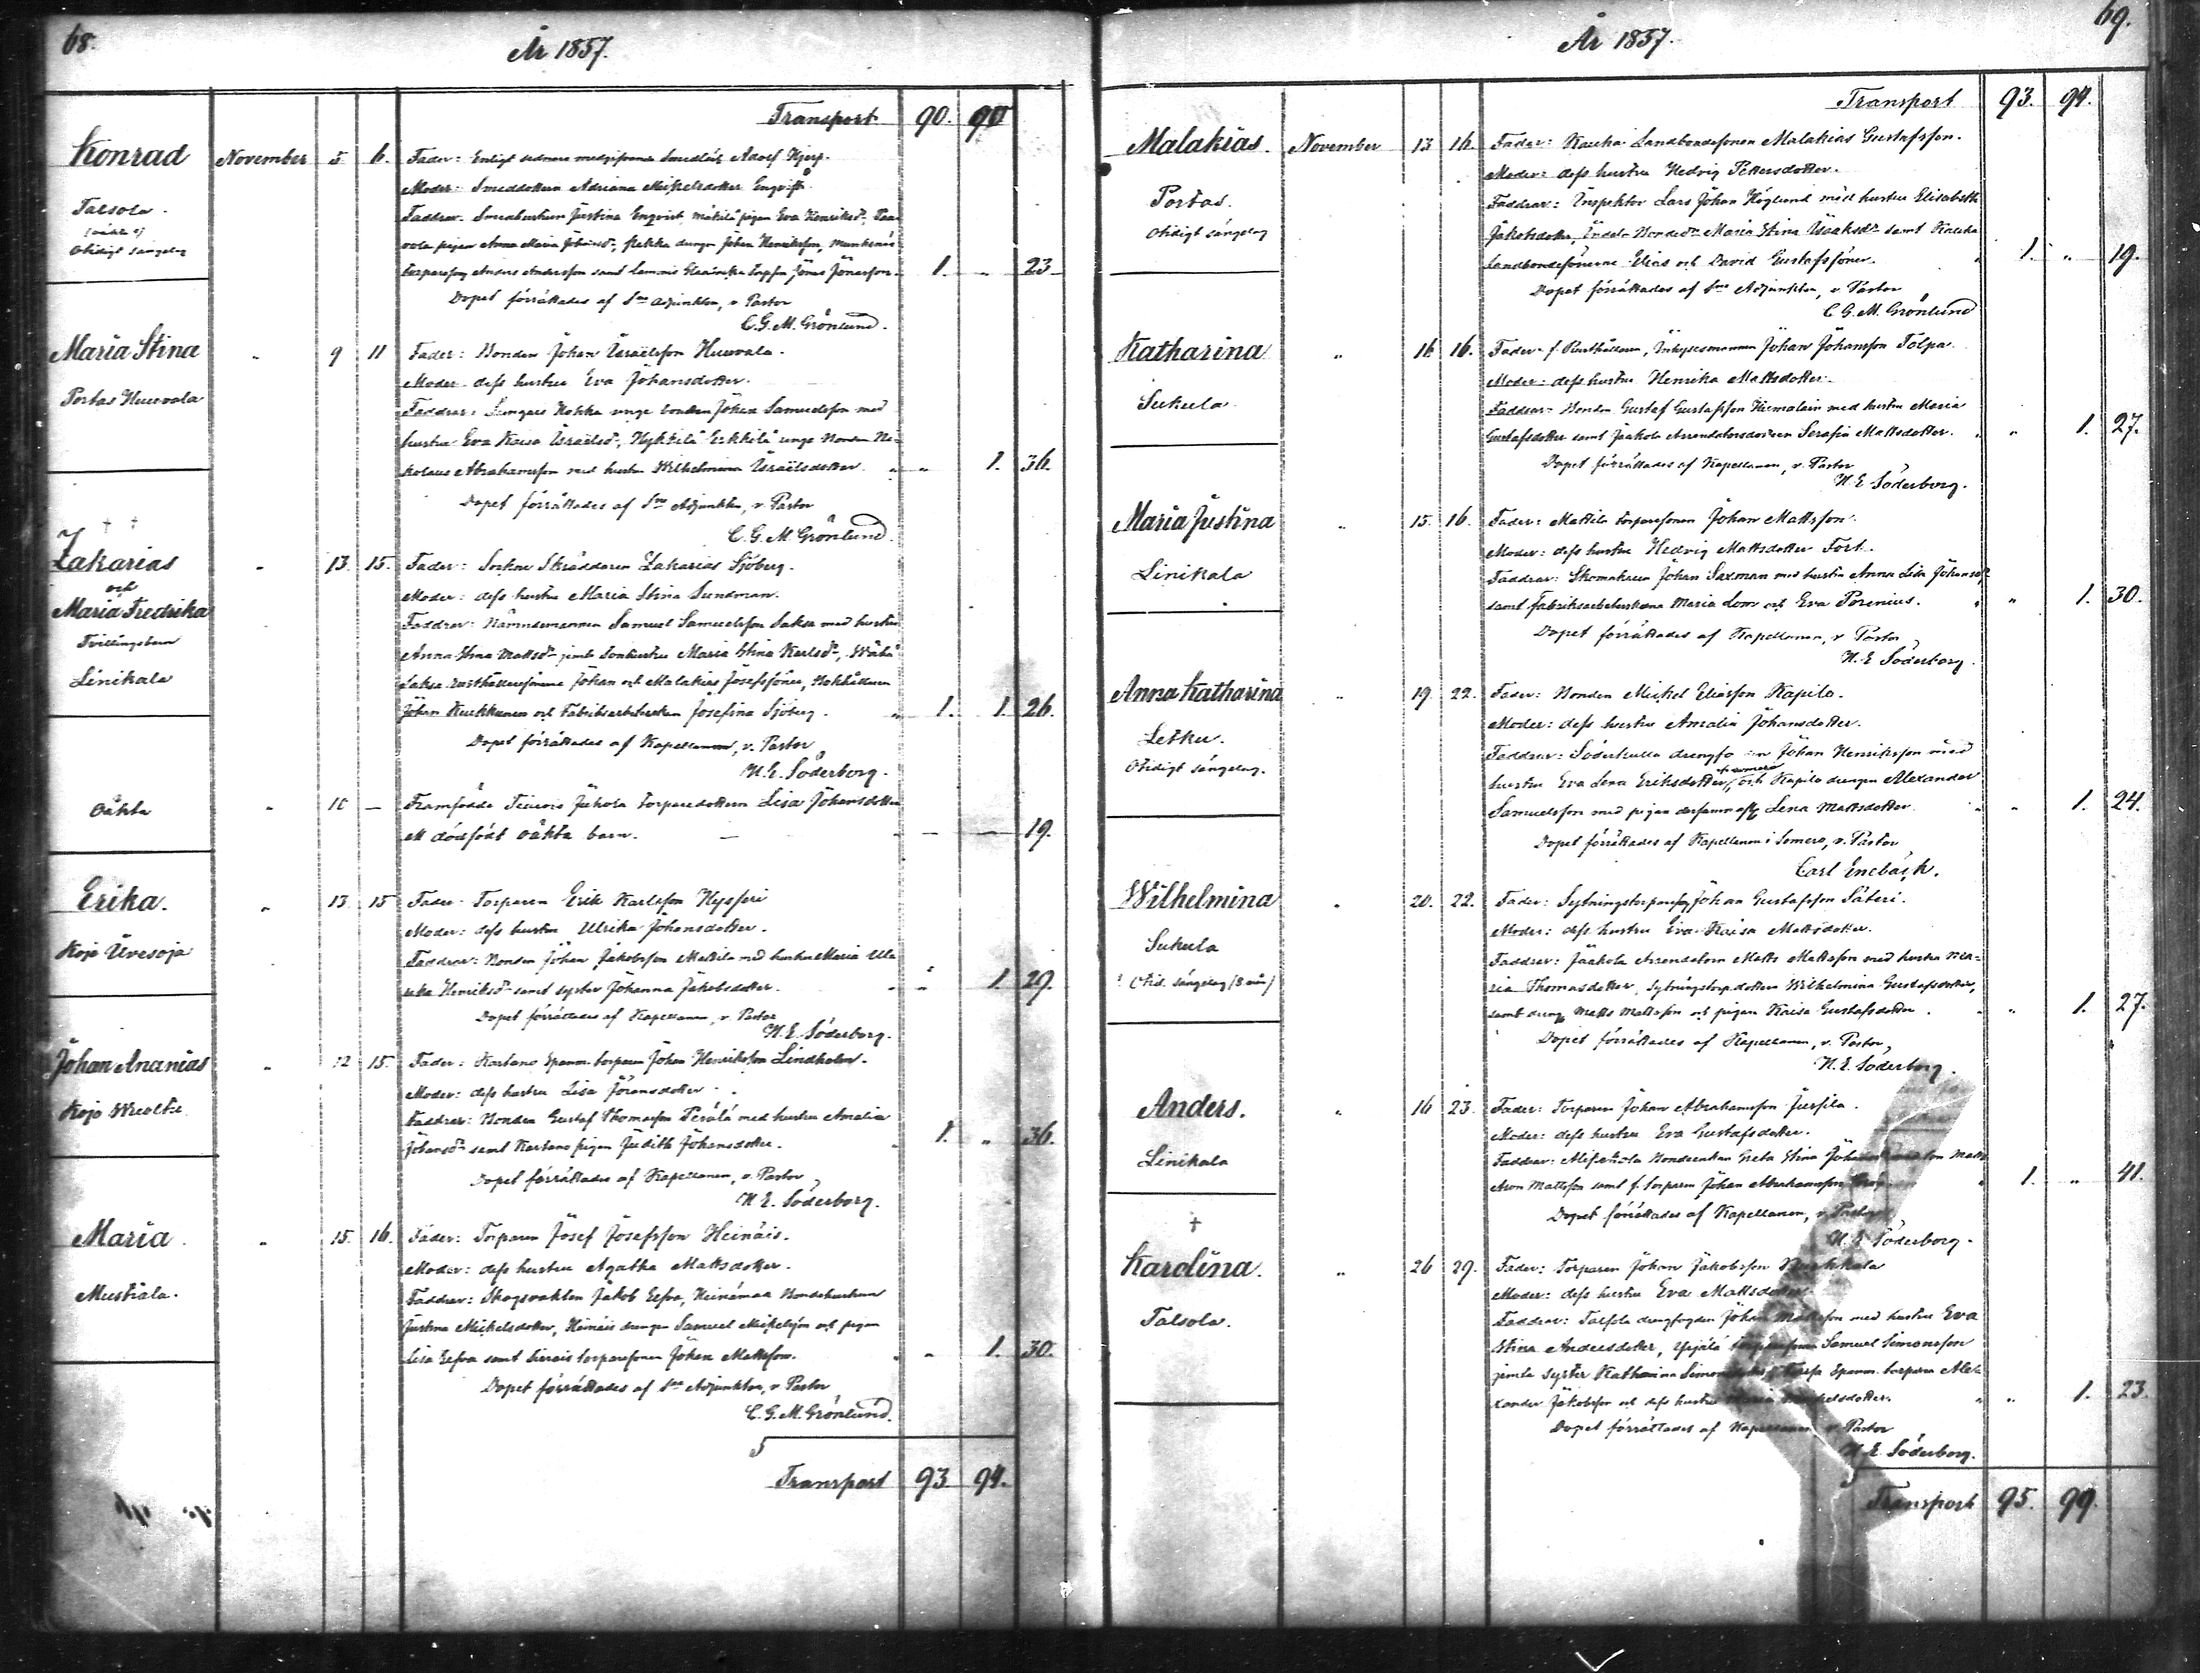 68.
År 1857.
Transport 90. 90
Konrad November 5. 6. Fader: Enligt sednare medgifvande Smedlär. Adolf Hjerp.
Moder: Smeddottern Adriana Mikelsdotter Engvist.
Talsola.
(oäkta)
Otidigt sängelag
Faddrar: Smedhustrun Justina Engvist, pigan Eva Henriksdr,
pigan Anna Maria Johansdr, drängen Johan Henriksson,
torpareson Anders Andersson samt Jonas Jonasson. 1. " 23
Dopet förrättades af Sne Adjunkten, v. Pastor
C. G. M. Grönlund.
Maria Stina " 9 11 Fader: Bonden Johan Israëlsson Huuvala.
Portas Huuvala
Moder: dess hustru Eva Johansdotter.
Faddrar: unge bonden Johan Samuelsson med
hustru Eva Kaisa Israëlsdr, unge Bonden Ni-
kolaus Abrahamsson med hustru Wilhelmina Israëlsdotter. " 1. 36.
Dopet förrättades af Sne Adjunkten, v. Pastor
C. G. M. Grönlund.
† †
Zakarias
och
Maria Fredrika
Tvillingsbarn
Linikala
" 13. 15. Fader: Socken Skräddaren Zakarias Sjöberg.
Moder: dess hustru Maria Stina Sundman.
Faddrar: Nämndemannen Samuel Samuelsson Saksa med hustru
Anna Stina Mattsdr, jemte Sonhustru Maria Stina Karlsdr,
Saksa Rusthållaresönerne Johan och Malakias Josefssöner, Bokhållaren
Johan och Fabriksarbeterskan Josefina Sjöberg. " 1. 1. 26.
Dopet förrättades af Kapellanen, v. Pastor
N. E. Söderborg.
Oäkta " 10 — Framfödde torparedottern Lisa Johansdotter
ett dödfödt oäkta barn. — — — 19.
Erika. " 13. 15 Fader: Torparen Erik Karlsson Hyssyri
Kojo Uvesoja
Moder: dess hustru Ulrika Johansdotter.
Faddrar: Bonden Johan Jakobsson Mattila med hustru Maria Ul-
rika Henriksdr samt syster Johanna Jakobsdotter. " 1. 29.
Dopet förrättades af Kapellanen, v. Pastor
N. E. Söderborg.
Johan Ananias " 12 15. Fader: Kartano Spanm. torparen Johan Henriksson Lindholm.
Kojo
Moder: dess hustru Lisa Göransdotter.
Faddrar: Bonden Gustaf Thomasson Perälä med hustru Amalia
Johansdr samt Kartano pigan Judith Johansdotter. 1. " 36.
Dopet förrättades af Kapellanen, v. Pastor
N. E. Söderborg.
Maria. " 15. 16. Fader: Torparen Josef Josefsson Heinäis.
Mustiala.
Moder: dess hustru Agatha Mattsdotter.
Faddrar: Skogsvakten Jakob Eefva, Heinämaa Bondehustrun
Justina Mickelsdotter, Heinäis drängen Samuel Mikelsson och pigan
Lisa Eefva samt torparesonen Johan Mattsson. " 1. 30.
Dopet förrättades af Sne Adjunkten, v. Pastor
C. G. M. Grönlund.
Transport 93 94.
69.
År 1857.
Transport 93. 94.
Malakias. November 13 16. Fader: Kauha Landbondesonen Malakias Gustafsson.
Portas.
Otidigt sängelag
Moder: dess hustru Hedvig Pettersdotter.
Faddrar: Inspektor Lars Johan Höglund med hustru Elisabeth
Jakobsdotter, Bondedr Maria Stina Isaksdr samt Kauha
Landbondesönerne Elias och David Gustafssöner. 1. " 19.
Dopet förrättades af Sne Adjunkten, v. Pastor
C. G. M. Grönlund
Katharina " 16 16. Fader: f. Rusthållaren, Inhysesmannen Johan Johansson Tolpa.
Sukula
Moder: dess hustru Henrika Mattsdotter.
Faddrar: Bonden Gustaf Gustafsson Humalain med hustru Maria
Gustafsdotter samt Jaakola Arrendatorsdottern Serafia Mattsdotter. " 1. 27.
Dopet förrättades af Kapellanen, v. Pastor
N. E. Söderborg.
Maria Justina " 15. 16. Fader: Mattila torparesonen Johan Mattsson.
Linikala
Moder: dess hustru Hedvig Mattsdotter Fort.
Faddrar: Skomakaren Johan Saxman med hustru Anna Lisa Johansdr
samt fabriksarbeterskorna Maria Lom och Eva Porenius. " 1. 30.
Dopet förrättades af Kapellanen, v. Pastor
N. E. Söderborg.
Anna Katharina " 19 22. Fader: Bonden Mickel Eliasson Kapilo.
Letku.
Otidigt sängelag.
Moder: dess hustru Amalia Johansdotter.
Faddrar: Söderkulla Johan Henriksson med
hustru Eva Lena Eriksdotter, och Kapilo drängen Alexander
Samuelsson med pigan dersammast. Lena Mattsdotter. " 1. 24.
Dopet förrättades af Kapellanen i Somero, v. Pastor
Carl Enebäck.
Wilhelmina " 20. 22. Fader: Sytningstorparesonen Johan Gustafsson Säteri.
Sukula
Otid. sängelag
Moder: dess hustru Eva Kaisa Mattsdotter.
Faddrar: Jaakola Arrendatorn Matts Mattsson med hustru Ma-
ria Thomasdotter, sytningstorp.dottern Wilhelmina Gustafsdotter,
samt dräng Matts Mattsson och pigan Kaisa Gustafsdotter. " 1. 27.
Dopet förrättades af Kapellanen, v. Pastor,
N. E. Söderborg.
Anders. " 16 23. Fader: Torparen Johan Abrahamsson Jussila.
Linikala
Moder: dess hustru Eva Gustafsdotter.
Faddrar: Bondeenkan Greta Stina
Aron Mattsson samt f. torparen Johan Abrahamsson 1. " 41.
Dopet förrättades af Kapellanen, v. Pastor
N. E. Söderborg.
†
Karolina. " 26 29. Fader: Torparen Johan Jakobsson
Talsola.
Moder: dess hustru Eva Mattsdotter.
Faddrar: Talsola drängfogden Johan Mattsson med hustru Eva
Stina Andersdotter, Samuel Simonsson
jemte syster Katharina Spanm. torparen Alex-
ander Jakobsson och dess hustru Maria " 1. 23.
Dopet förrättades af Kapellanen v. Pastor
N. E. Söderborg.
Transport 95. 99.